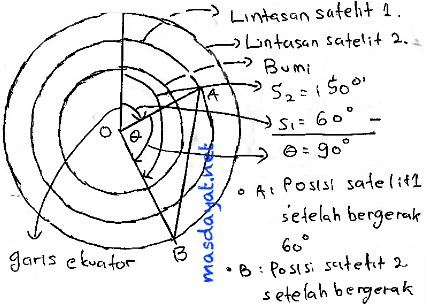 Lintasan satelit 1.
Lintasan satelit 2.
Bumi
S₂ = 150°
S₁ = 60°
θ = 90°
A
O
θ
B
garis ekuator
masdayat.net
• A: Posisi satelit 1
setelah bergerak
60°
• B: Posisi satelit 2
setelah bergerak